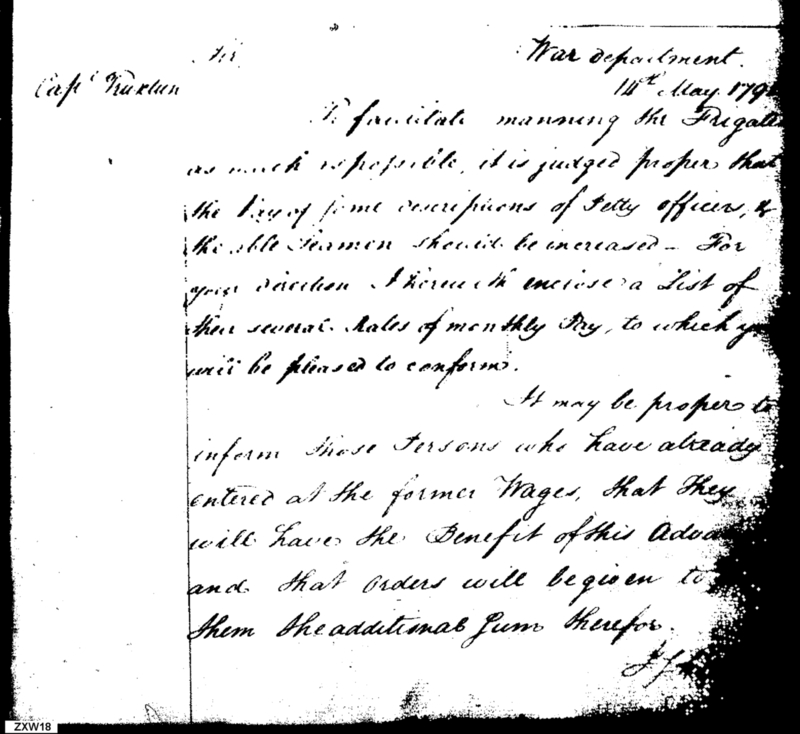 Sir
War department.
Capt Truxtun
14th May 179
To facilitate manning the Frigates
as much as possible, it is judged proper that
the Pay of some descriptions of Petty officers, &
the able Seamen should be increased – For
your direction I herewith enclose a List of
their several Rates of monthly Pay, to which you
will be pleased to conform.
It may be proper to
inform those Persons who have already
entered at the former Wages, that They
will have the Benefit of this Adva
and that orders will be given to
them the additional Sum therefor.
ZXW18